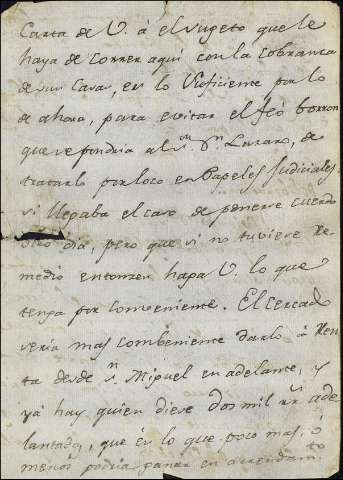 Carta de V. á el sugeto que le
haya de correr aqui con la cobranza
de sus Casas, en lo Uficiente por lo
de ahora, para evitar el feo borron
que se pondria al Sr. Dn Lazaro, de
tratarlo por loco en Papeles Judiciales
si llegaba el caso de ponerse cuerdo
otro dia, pero que si no tuviere Re-
medio entonzes haga V. lo que
tenga por combeniente. El cercado
seria mas combeniente darlo á Ren-
ta desde Sn. Miguel en adelante, y
yá hay quien diese dos mil rrs ade-
lantados, que és lo que poco mas, o
menos podria ganar en arrendamto.